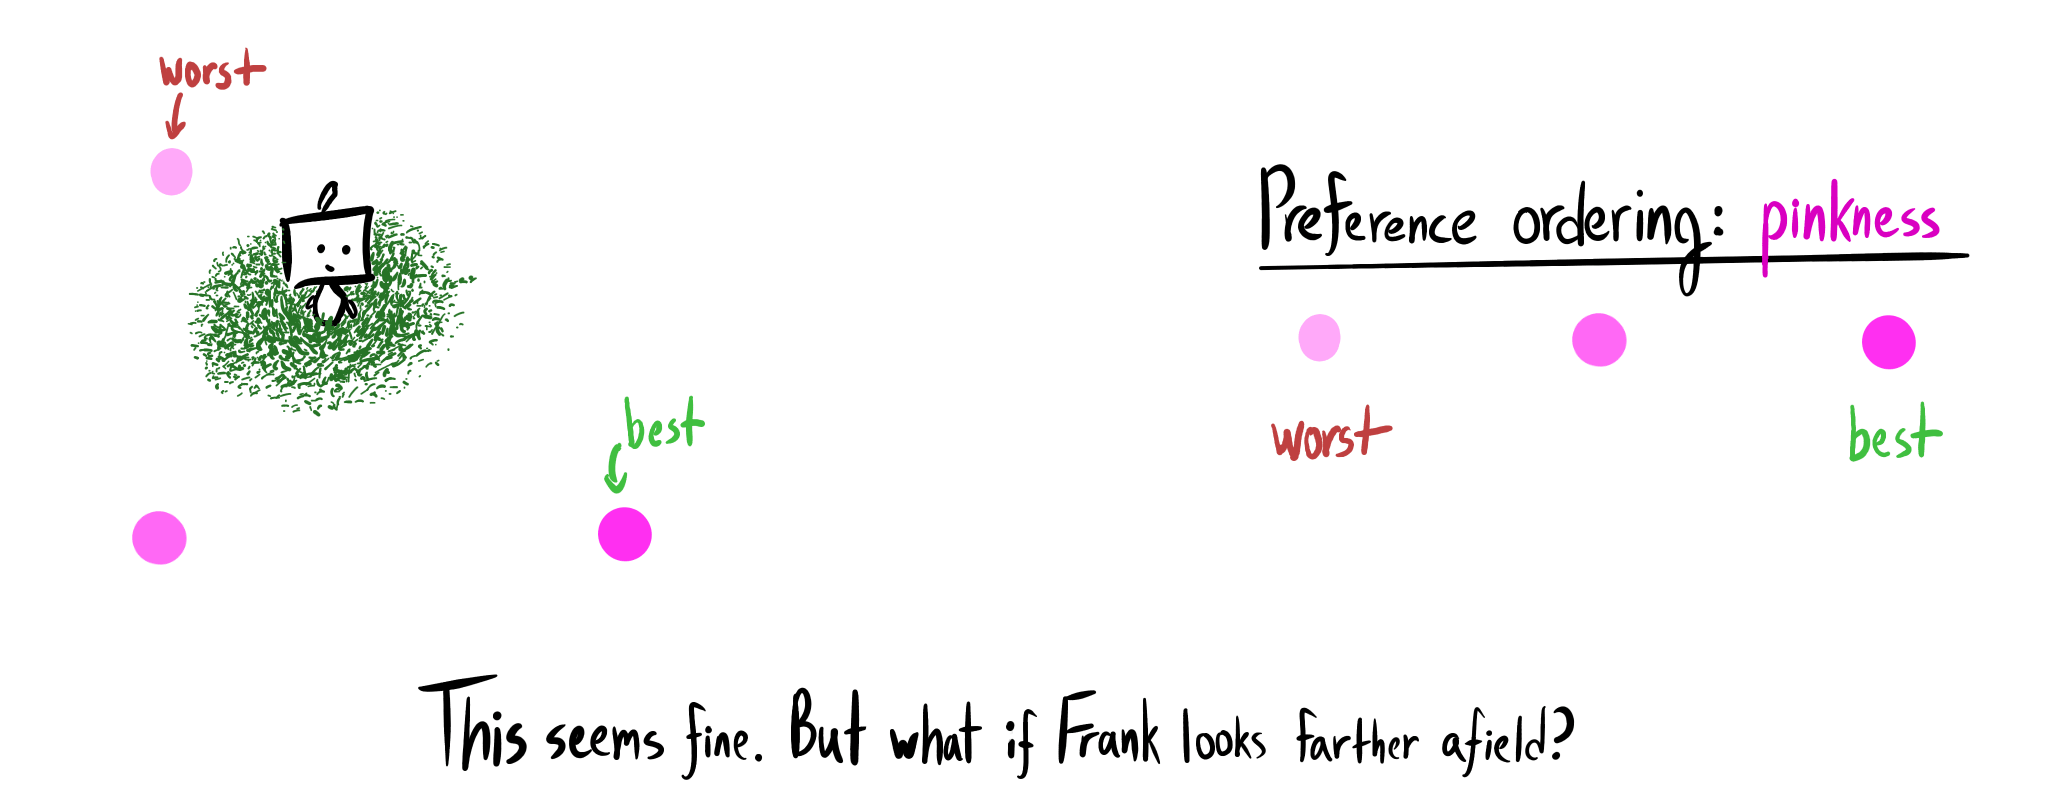 worst
best
Preference ordering: pinkness
worst
best
This seems fine. But what if Frank looks farther afield?